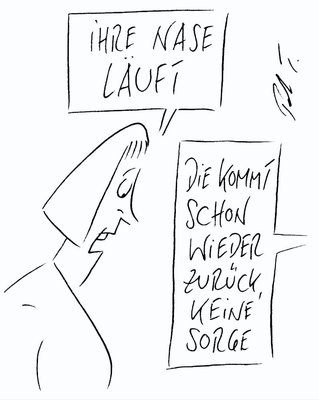 IHRE NASE
LÄUFT
DIE KOMMT
SCHON
WIEDER
ZURÜCK,
KEINE
SORGE